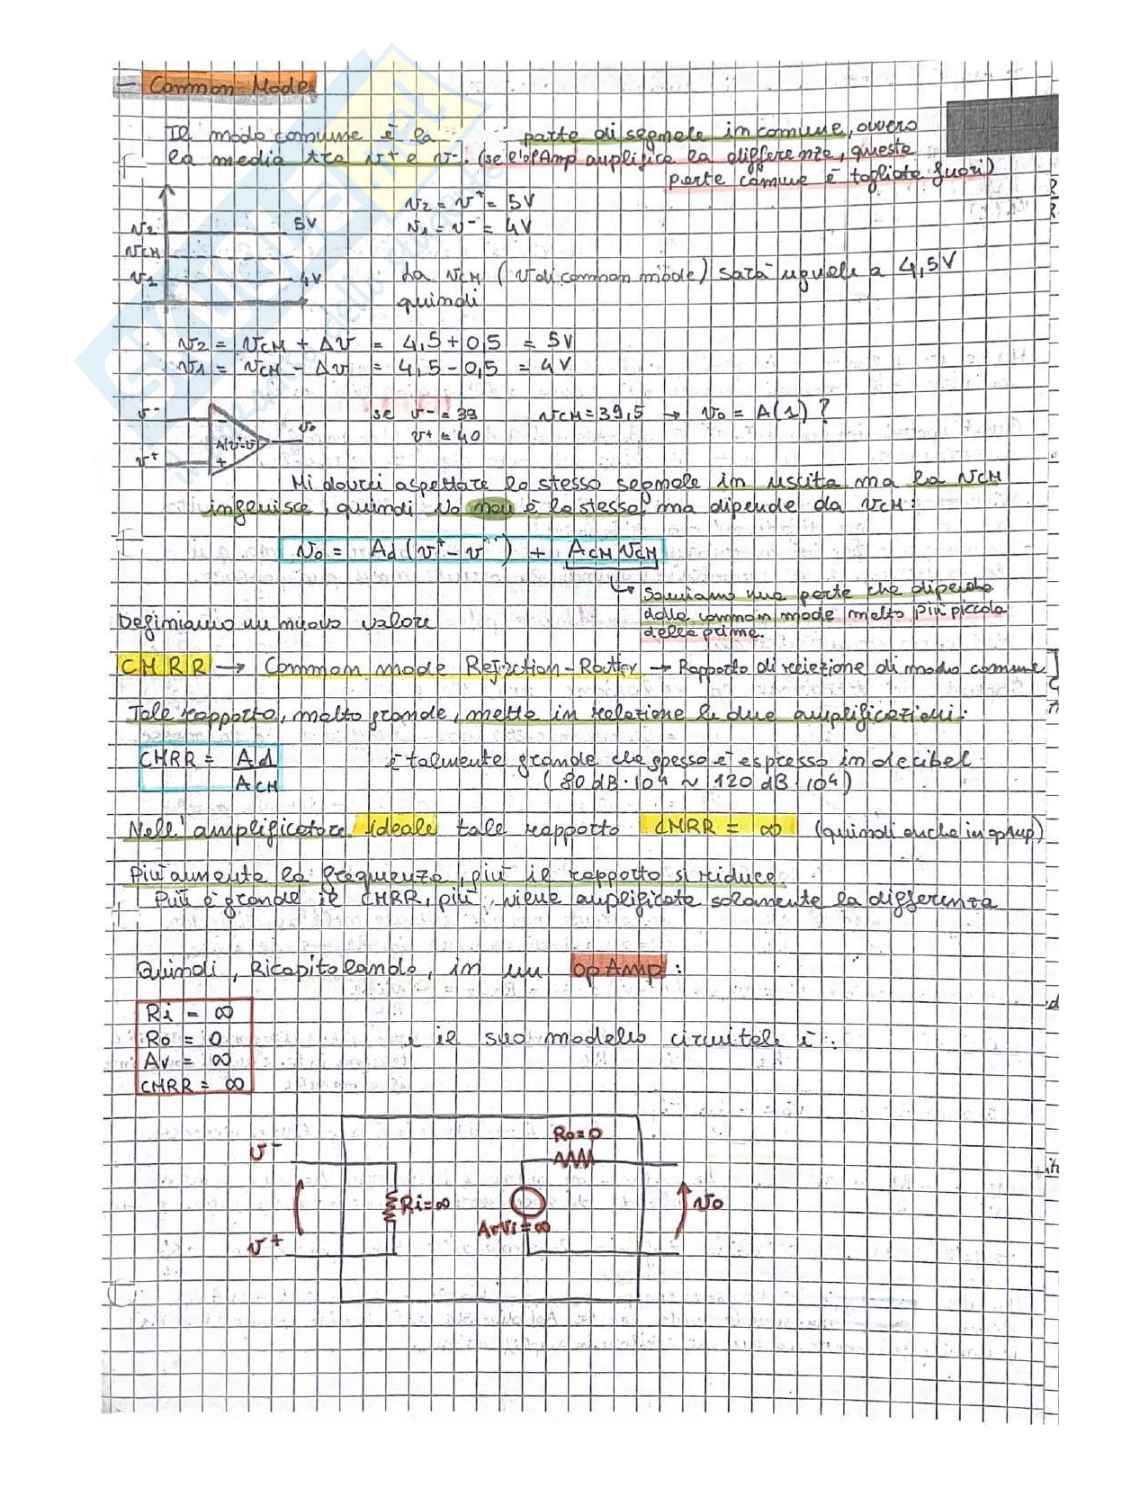 - Common Mode
Il modo comune è la parte di segnale in comune, ovvero
la media tra v+ e v-. (se l'opAmp amplifica la differenza, questa
parte comune è togliata fuori)
v2 = v+ = 5V
v1 = v- = 4V
v2 5V
vCM
v1 4V
La vCM (V di common mode) sarà uguale a 4,5V
quindi
v2 = vCM + Δv = 4,5 + 0,5 = 5V
v1 = vCM - Δv = 4,5 - 0,5 = 4V
v-
v+
vo
se v- = 39 vCM = 39,5 → vo = A(1) ?
v+ = 40
Mi dovrei aspettare lo stesso segnale in uscita ma la vCM
influisce, quindi vo non è lo stesso, ma dipende da vCM:
vo = Ad(v+ - v-) + ACM vCM
↳ Sommiamo una parte che dipende
dalla common mode molto più piccola
della prima.
Definiamo un nuovo valore
CMRR → Common mode Rejection-Ratio → Rapporto di reiezione di modo comune
Tale rapporto, molto grande, mette in relazione le due amplificazioni:
CMRR = Ad
ACM
è talmente grande che spesso è espresso in decibel
(80 dB · 10⁴ ~ 120 dB · 10⁴)
Nell'amplificatore ideale tale rapporto CMRR = ∞ (quindi anche in opAmp)
Più aumenta la frequenza, più il rapporto si riduce.
Più è grande il CMRR, più viene amplificata solamente la differenza
Quindi, Ricapitolando, in un opAmp:
Ri = ∞
Ro = 0
Av = ∞
CMRR = ∞
e il suo modello circuitale è:
v-
v+
Ri=∞
Ro=0
AvVi=∞
vo